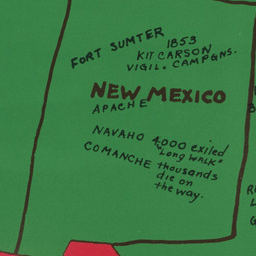 FORT SUMTER 1853
KIT CARSON
VIGIL. CAMPGNS.
NEW MEXICO
APACHE
NAVAHO 4000 exiled
"Long WALK"
COMANCHE thousands
die on
the way.